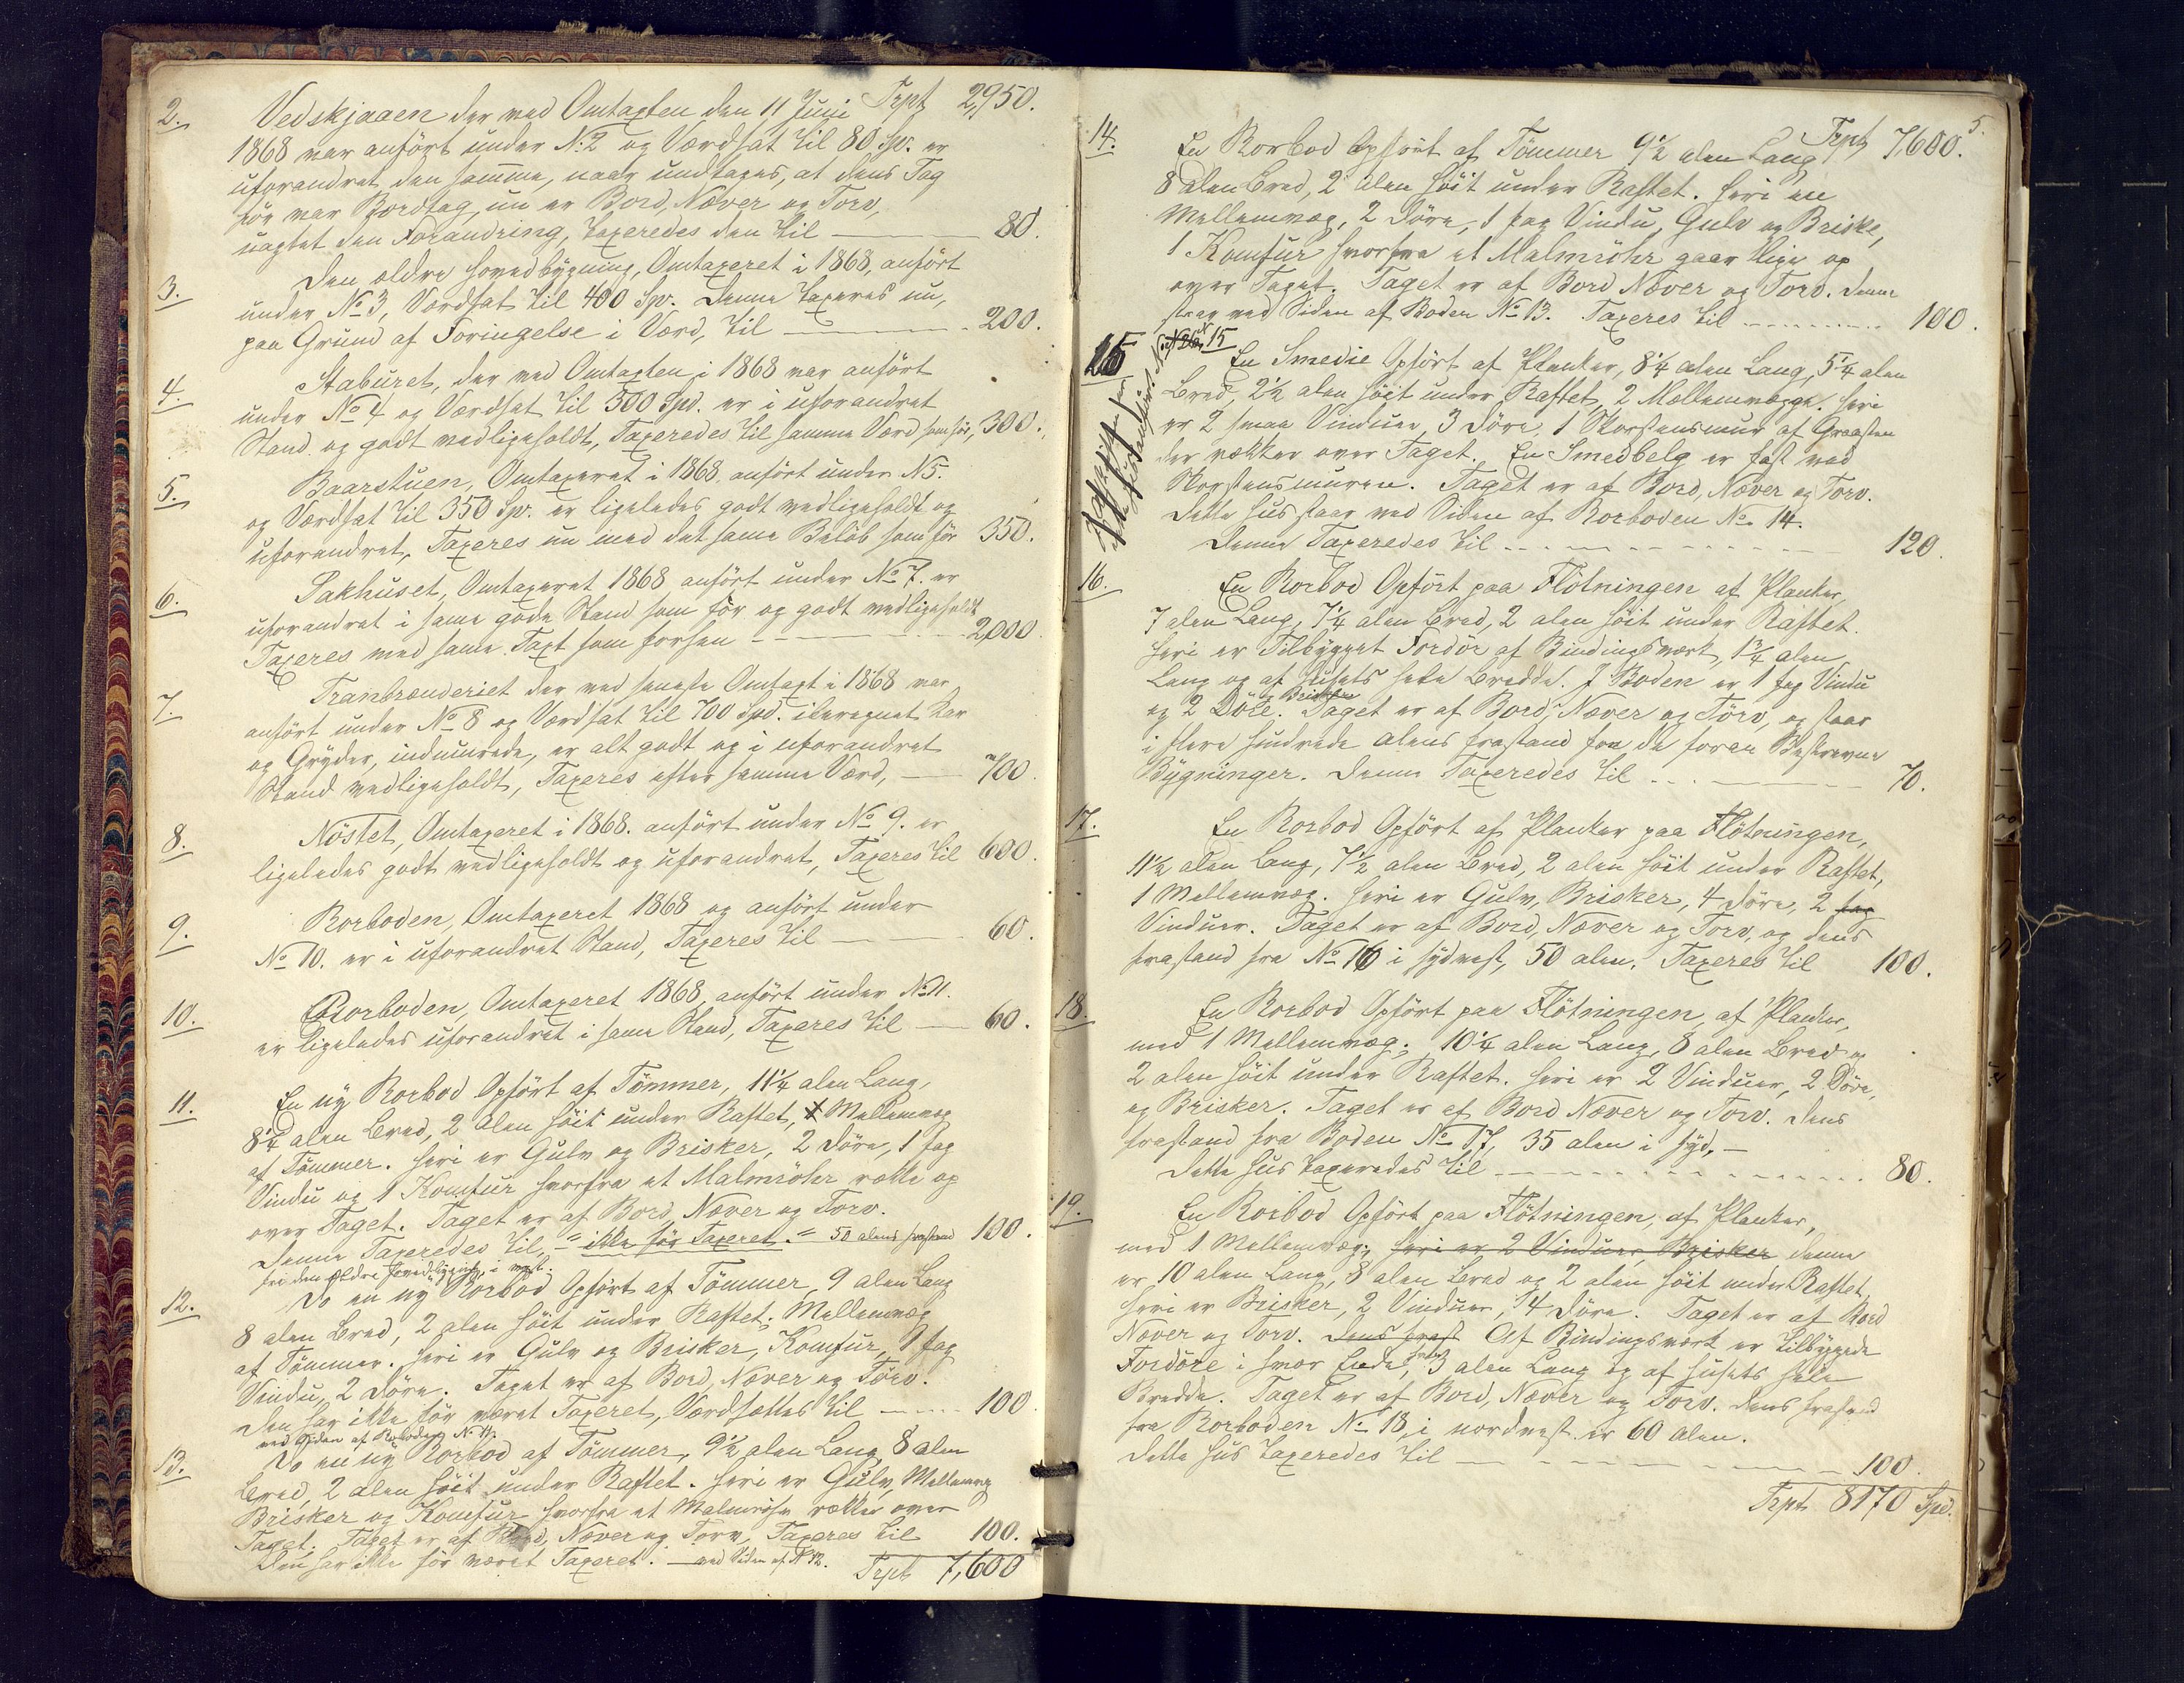 Trpt 2,950.
2. Vedskjaaen der ved Omtaxten den 11 Juni
1868 var anført under N: 2 og Værdsat til 80 Sp. er
uforandret den samme, naar undtages, at dens Tag
før var Jordtag, nu er Bord, Næver og Torv,
uagtet den Forandring, taxeredes den til — 80.
3. Den ældre Hovedbygning, Omtaxeret i 1868, anført
under No 3, Værdsat til 400 Spr. Denne taxeres nu,
paa Grund af Foringelse i Værd, til — 200.
4. Staburet, der ved Omtaxten i 1868 var anført
under No 4 og Værdsat til 300 Spd. er i uforandret
Stand og godt vedligeholdt, Taxeredes til samme Værd som før, 300.
5. Baarstuen, Omtaxeret i 1868, anført under N 5.
og Værdsat til 350 Sp. er ligeledes godt vedligeholdt og
uforandret, Taxeres nu med det same Beløb som før 350.
6. Pakhuset, Omtaxeret 1868 anført under No 7. er
uforandret i same gode Stand som før og godt vedligeholdt
Taxeres med same Taxt som forhen — 2,000.
7. Tranbrænderiet der ved seneste Omtaxt i 1868 var
anført under No 8 og Værdsat til 700 Spd. iberegnet Kar
og Gryder, indmurede, er alt godt og i uforandret
Stand vedligeholdt, Taxeres efter samme Værd, — 700.
8. Nöstet, Omtaxeret i 1868. anført under No 9. er
ligeledes godt vedligeholdt og uforandret, Taxeres til 600.
9. Rorboden, Omtaxeret 1868 og anført under
No 10. er i uforandret Stand, Taxeres til — 60.
10. Rorboden, Omtaxeret 1868, anført under No 11.
er ligeledes uforandret i same Stand, Taxeres til — 60.
11. En ny Rorbod Opført af Tömmer, 11 1/4 alen Lang,
8 1/4 alen Bred, 2 alen höit under Raftet, 1 Mellemvæg
af Tömmer. Heri er Gulv og Brisker, 2 Döre, 1 fag
Vindu og 1 Komfur hvorfra et Malmrøhr rækker op
over Taget. Taget er af Bord, Næver og Torv.
Denne Taxeredes til, = ikke før Taxeret. = 50 alens frastand 100.
fra den Ældre Hovedbygning, i vest.
12. Do en ny Rorbod Opført af Tömmer, 9 alen Lang
8 alen Bred, 2 alen höit under Raftet, Mellemvæg
af Tömmer. Heri er Gulv og Brisker, Komfur, 1 fag
Vindu, 2 Döre. Taget er af Bord, Næver og Torv.
Den har ikke før været Taxeret, Værdsættes til — 100
ved Siden af Rorboden No 11.
13. Do en ny Rorbod af Tömmer, 9 1/2 alen Lang, 8 alen
Bred, 2 alen höit under Raftet. Heri er Gulv, Mellemvæg
Brisker og Komfur hvorfra et Malmröhr rækker over
Taget. Taget er af Bord, Næver og Torv, Taxeres til 100.
Den har ikke før været Taxeret. — ved Siden af No 12.
Trpt 7,600
5.
Trpt 7,600.
14. En Rorbod Opført af Tömmer 9 1/2 alen Lang,
8 alen Bred, 2 alen höit under Raftet. Heri en
Mellemvæg, 2 Döre, 1 fag Vindu, Gulv og Briske,
1 Komfur hvorfra et Malmröhr gaar lige op
over Taget. Taget er af Bord Næver og Torv. Denne
staar ved Siden af Boden No 13. Taxeres til — 100.
15 En Smedie Opført af Planker, 8 1/4 alen Lang, 5 1/4 alen
Bred, 2 1/2 alen höit under Raftet, 2 Mellemvægge. Heri
er 2 smaa Vinduer, 3 Döre, 1 Skorstensmur af Graasten
der rækker over Taget. En Smedbelg er fast ved
Skorstensmuren. Taget er af Bord, Næver og Torv.
Dette hus staar ved Siden af Rorboden No 14.
Denne Taxeredes til — 120.
16. En Rorbod Opført paa Flötningen af Planker,
7 alen Lang, 7 1/4 alen Bred, 2 alen höit under Raftet.
Heri er Tilbygget Fordör af Bindingsværk, 1 3/4 alen
Lang og af Husets hele Bredde. I Boden er 1 fag Vindu
og 2 Döre. Brisker Taget er af Bord, Næver og Törv, og staar
i flere hundrede alens frastand fra de foran Beskrevne
Bygninger. Denne Taxeredes til — 70.
17. En Rorbod Opført af Planker paa Flötningen,
11 1/2 alen Lang, 7 1/2 alen Bred, 2 alen höit under Raftet,
1 Mellemvæg. Heri er Gulv, Brisker, 4 Döre, 2 fag
Vinduer. Taget er af Bord, Næver og Torv, og dens
frastand fra No 16 i sydvest, 50 alen. Taxeres til 100.
18. En Rorbod Opført paa Flötningen, af Planker,
med 1 Mellemvæg, 10 1/4 alen Lang, 8 alen Bred og
2 alen höit under Raftet. Heri er 2 Vinduer, 2 Döre,
og Brisker. Taget er af Bord Næver og Torv. Dens
frastand fra Boden No 17, 35 alen i Syd. —
Dette hus taxeredes til — 80.
19. En Rorbod Opført paa Flötningen, af Planker,
med 1 Mellemvæg, heri er 2 Vinduer, Brisker denne
er 10 alen Lang, 8 alen Bred og 2 alen höit under Raftet,
Heri er Brisker, 2 Vinduer, 4 Döre. Taget er af Bord
Næver og Torv. Dens frast Af Bindingsværk er tilbyggede
Fordöre i hver Ende, 3 alen Lang og af husets hele
Bredde. Taget er af Bord, Næver og Torv. Dens frastand
fra Rorboden No 18, i nordvest er 60 alen.
Dette hus taxeredes til — 100.
Trpt 8170 Spd.